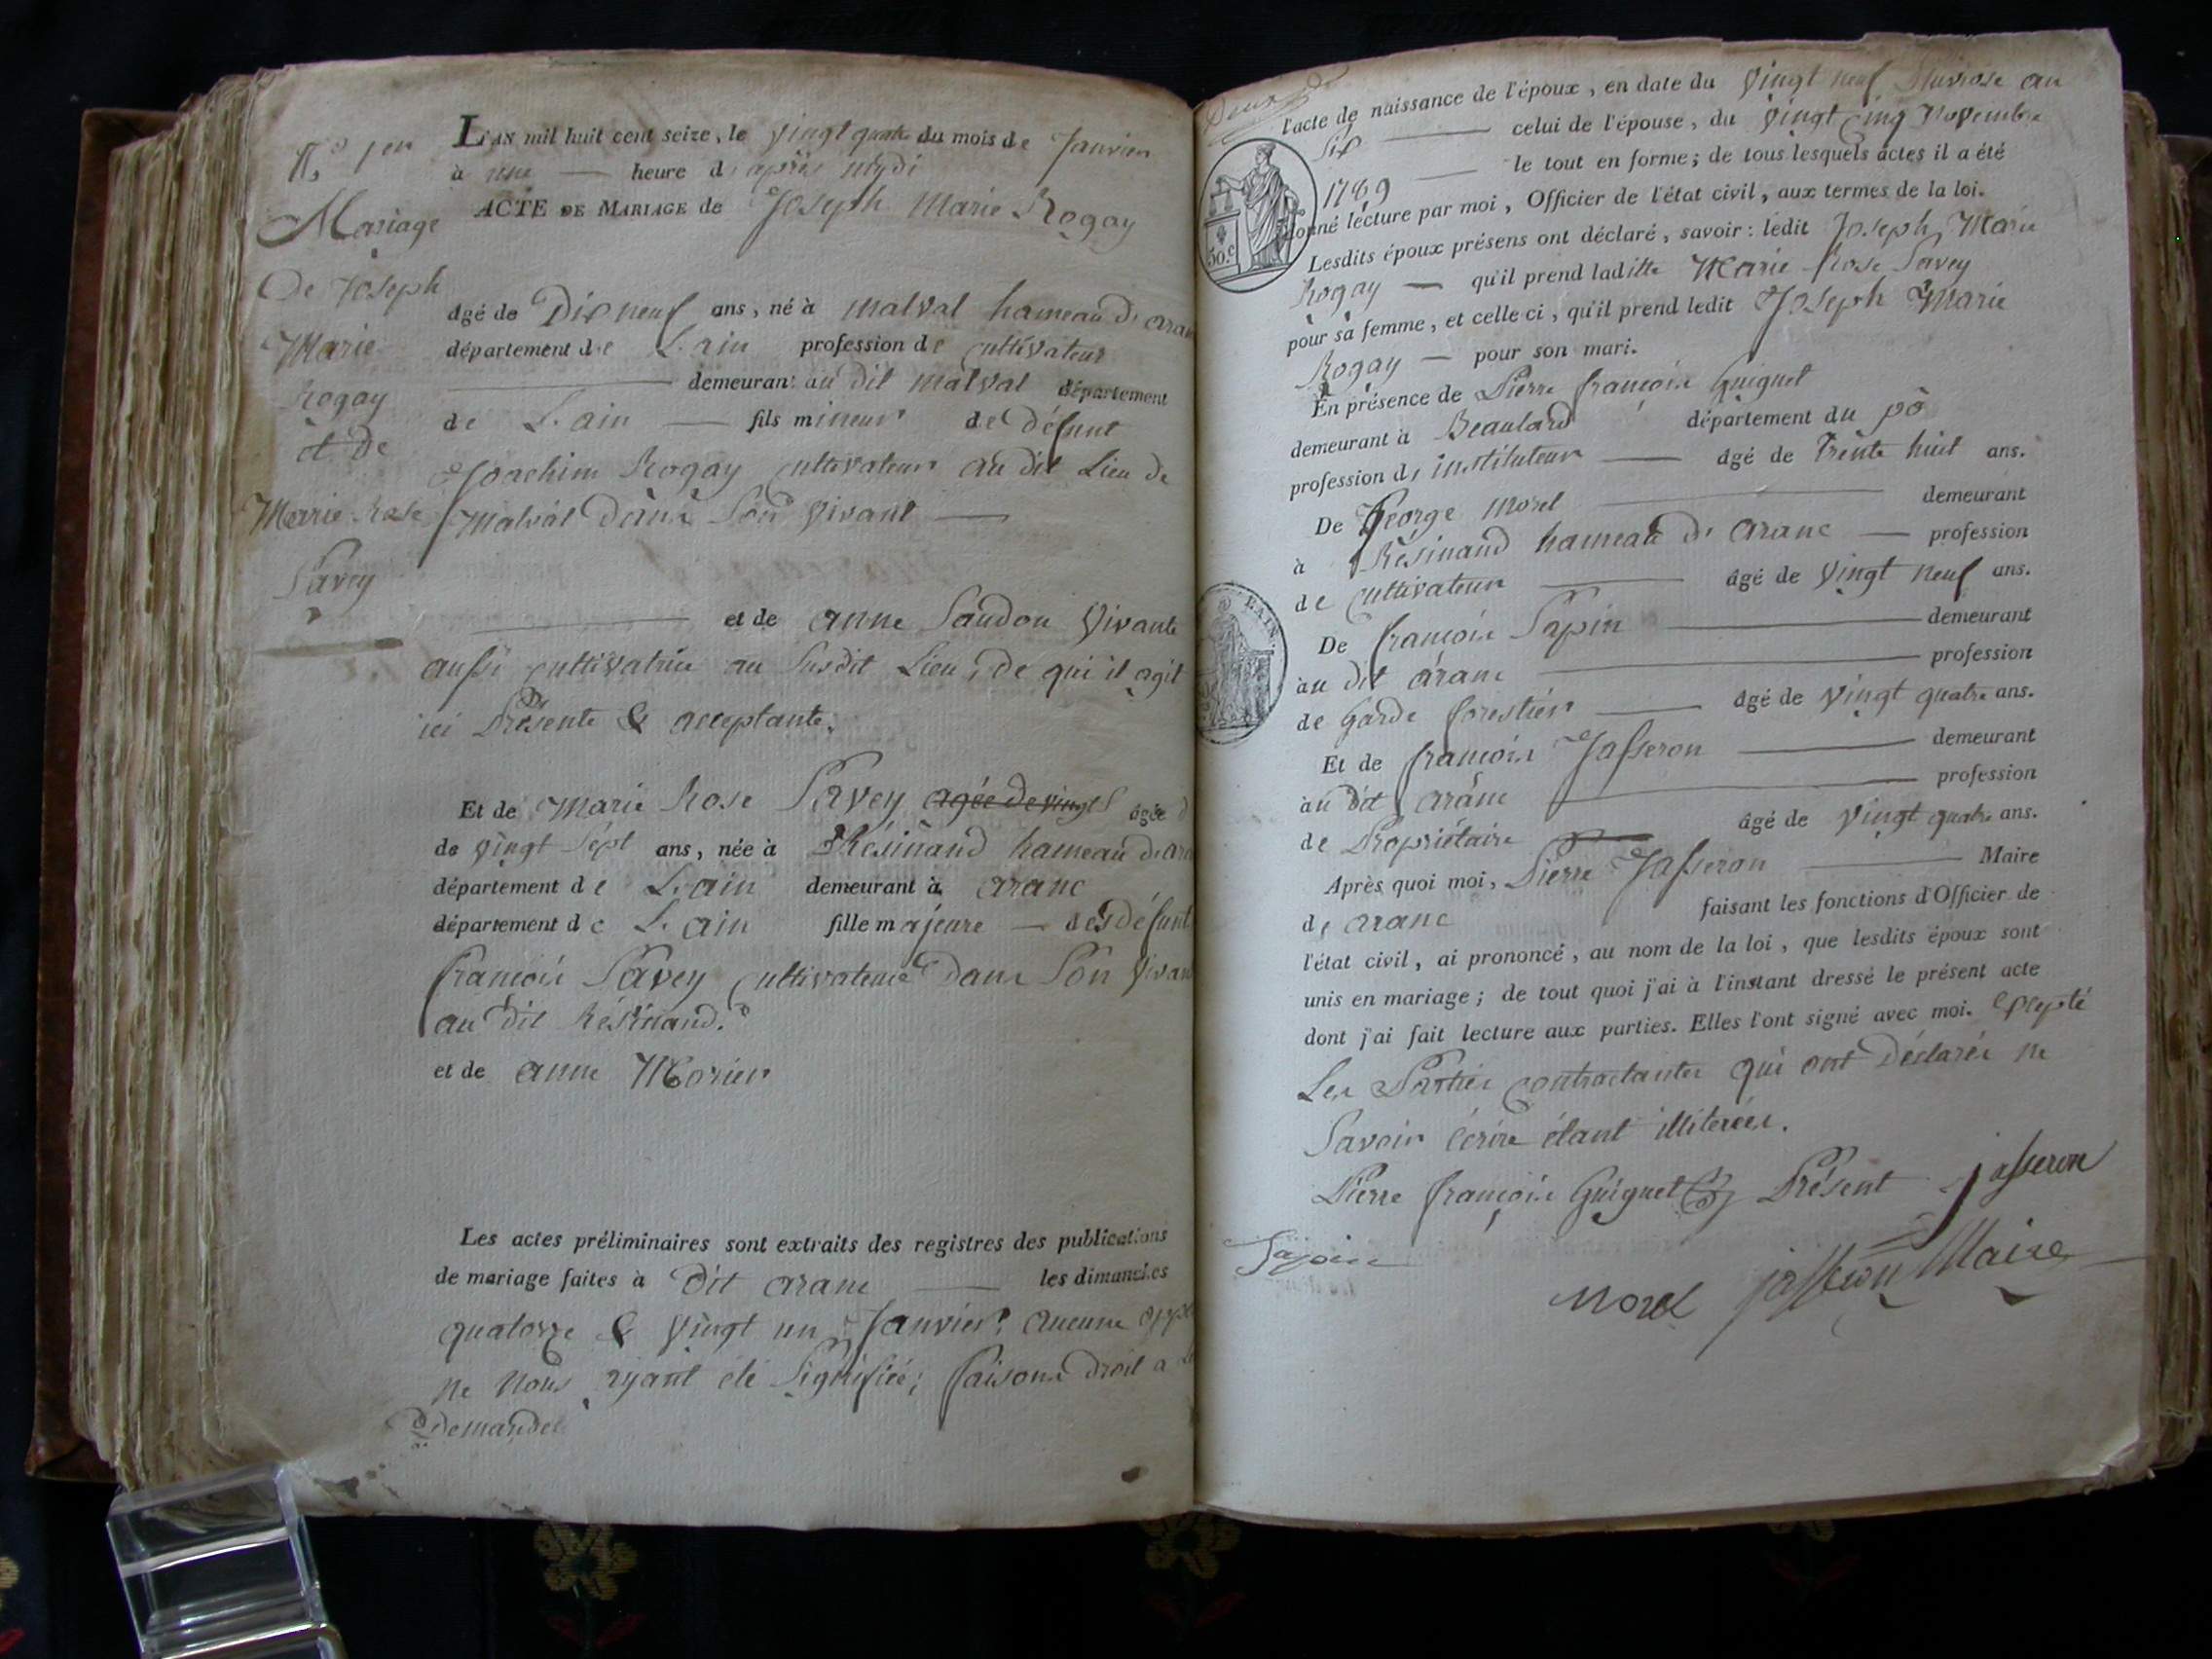 N.o 1er
Mariage
De Joseph
Marie
Rogay
et De
Marie Rose
Savey
L'AN mil huit cent seize, le vingt quatre du mois de Janvier
à une heure d'après mydi
ACTE DE MARIAGE de Joseph Marie Rogay
âgé de Dix neuf ans, né à Malval hameau d'aran
département de L'ain profession de cultivateur
demeurant au dit malval département
de L'ain fils mineur de défunt
Joachim Rogay cultivateur au dit Lieu de
Malval dans son vivant
et de anne Saudon vivante
aussi cultivatrice au susdit Lieu, de qui il agit
ici Présente & acceptante.
Et de Marie Rose Savey agée de vingt âgée d
de vingt sept ans, née à Résinand hameau d'ara
département de L'ain demeurant à aranc
département de L'ain fille majeure des défunt
françois Savey cultivateur dans son vivan
au dit Résinand.
et de anne Morier
Les actes préliminaires sont extraits des registres des publications
de mariage faites à dit aranc les dimanches
quatorze & vingt un Janvier, aucune oppo
ne nous ayant été signifiée; faisons droit a
Demandes
Deux
l'acte de naissance de l'époux, en date du vingt neuf Nivose an
six celui de l'épouse, du vingt cinq Novembre
1789 le tout en forme; de tous lesquels actes il a été
donné lecture par moi, Officier de l'état civil, aux termes de la loi.
Lesdits époux présens ont déclaré, savoir: ledit Joseph Marie
Rogay qu'il prend laditte Marie Rose Savey
pour sa femme, et celle ci, qu'il prend ledit Joseph Marie
Rogay pour son mari.
En présence de Pierre françois Guiguet
demeurant à Beaulard département du pô
profession d'instituteur âgé de trente huit ans.
De George Morel demeurant
à Résinand hameau d'aranc profession
de cultivateur âgé de vingt neuf ans.
De françois Sapin demeurant
au dit aranc profession
de Garde forestier âgé de vingt quatre ans.
Et de françois Jasseron demeurant
au dit aranc profession
de Propriétaire âgé de vingt quatre ans.
Après quoi moi, Pierre Jasseron Maire
d'aranc faisant les fonctions d'Officier de
l'état civil, ai prononcé, au nom de la loi, que lesdits époux sont
unis en mariage; de tout quoi j'ai à l'instant dressé le présent acte
dont j'ai fait lecture aux parties. Elles l'ont signé avec moi. Excepté
Les Parties contractantes qui ont déclarés ne
savoir écrire étant illiterées.
Pierre françois Guiguet Présent jasseron
Sapin
Morel jasseron Maire
50.c
EAIN.